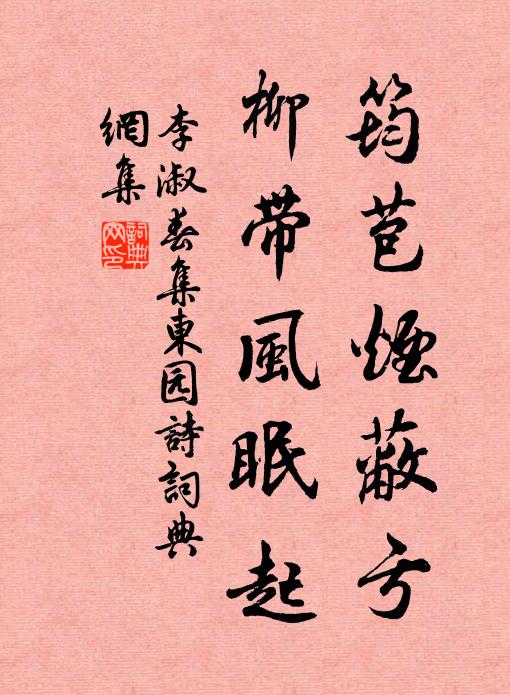 筠苞煙蔽亏
柳帶風眠起
李淑春集東园詩詞典
網集
詞典網印